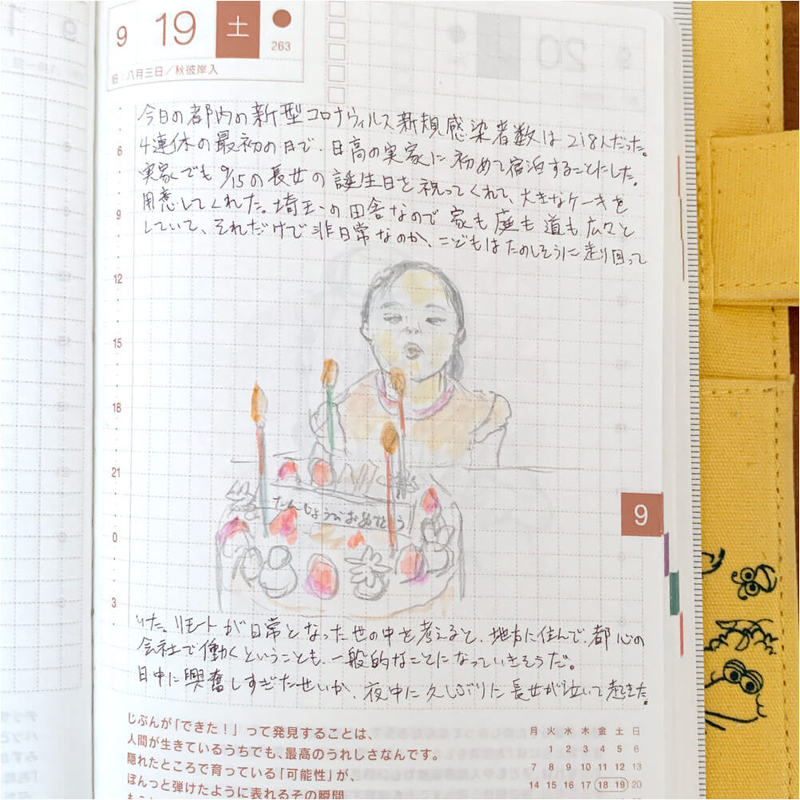 9 19 土
263
旧 八月三日/秋彼岸入
20
今日の都内の新型コロナウィルス新規感染者数は218人だった。
4連休の最初の日で、日高の実家に初めて宿泊することにした。
実家でも9/15の長女の誕生日を祝ってくれて、大きなケーキを
用意してくれた。埼玉の田舎なので家も庭も道も広々と
していて、それだけで非日常なのか、こどもはたのしそうに走り回って
6
9
12
15
18
21
0
3
たんじょうびおめでとう
9
いた。リモートが日常となった世の中を考えると、地方に住んで、都心の
会社で働くということも、一般的なことになっていきそうだ。
日中に興奮しすぎたせいか、夜中に久しぶりに長女が泣いて起きた。
じぶんが「できた!」って発見することは、
人間が生きているうちでも、最高のうれしさなんです。
隠れたところで育っている「可能性」が、
ぽんっと弾けたように表れるその瞬間
月 火 水 木 金 土 日
1 2 3 4 5 6
7 8 9 10 11 12 13
14 15 16 17 18 19 20